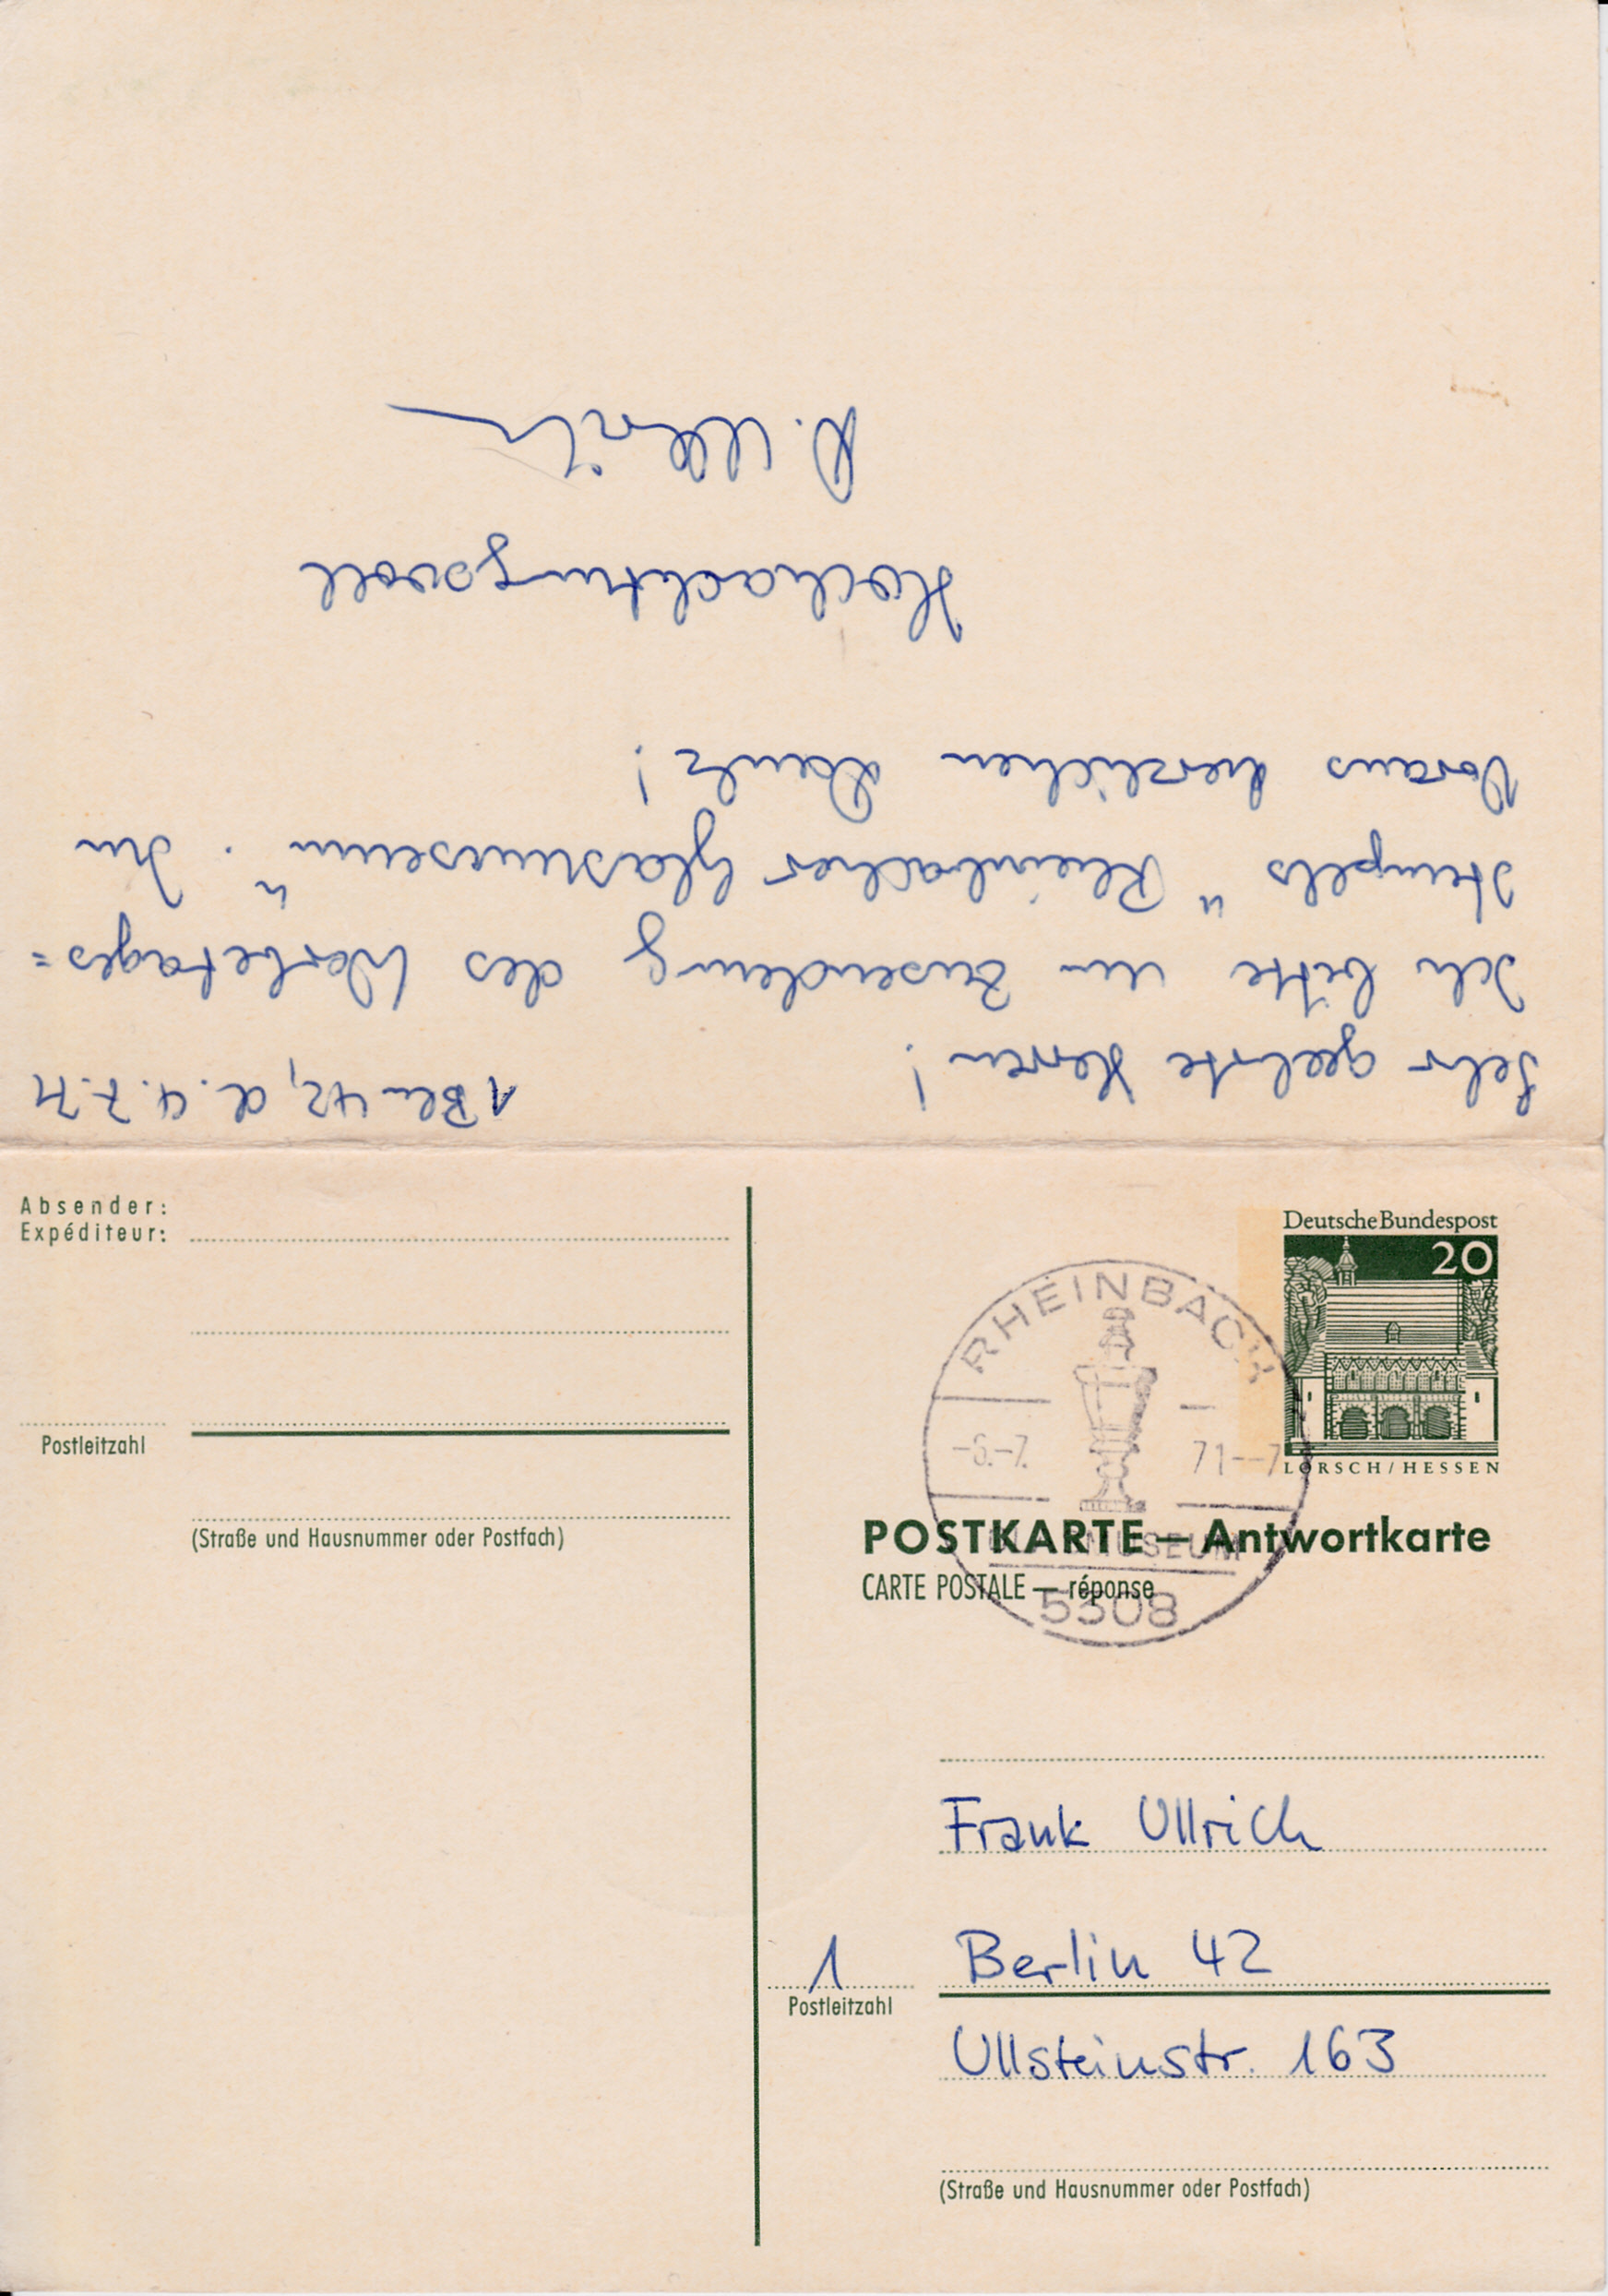 1 Bln 42, d. 4.7.71
Sehr geehrte Herren!
Ich bitte um Zusendung des Werbetages=
stempels "Rheinbacher Glasmuseum". Im
Voraus herzlichen Dank!
Hochachtungsvoll
Ullrich
Absender:
Expéditeur:
Postleitzahl
(Straße und Hausnummer oder Postfach)
Deutsche Bundespost
20
LORSCH/HESSEN
RHEINBACH
-6.-7. 71--7
MUSEUM
5308
POSTKARTE — Antwortkarte
CARTE POSTALE — réponse
Frank Ullrich
1 Berlin 42
Postleitzahl
Ullsteinstr. 163
(Straße und Hausnummer oder Postfach)